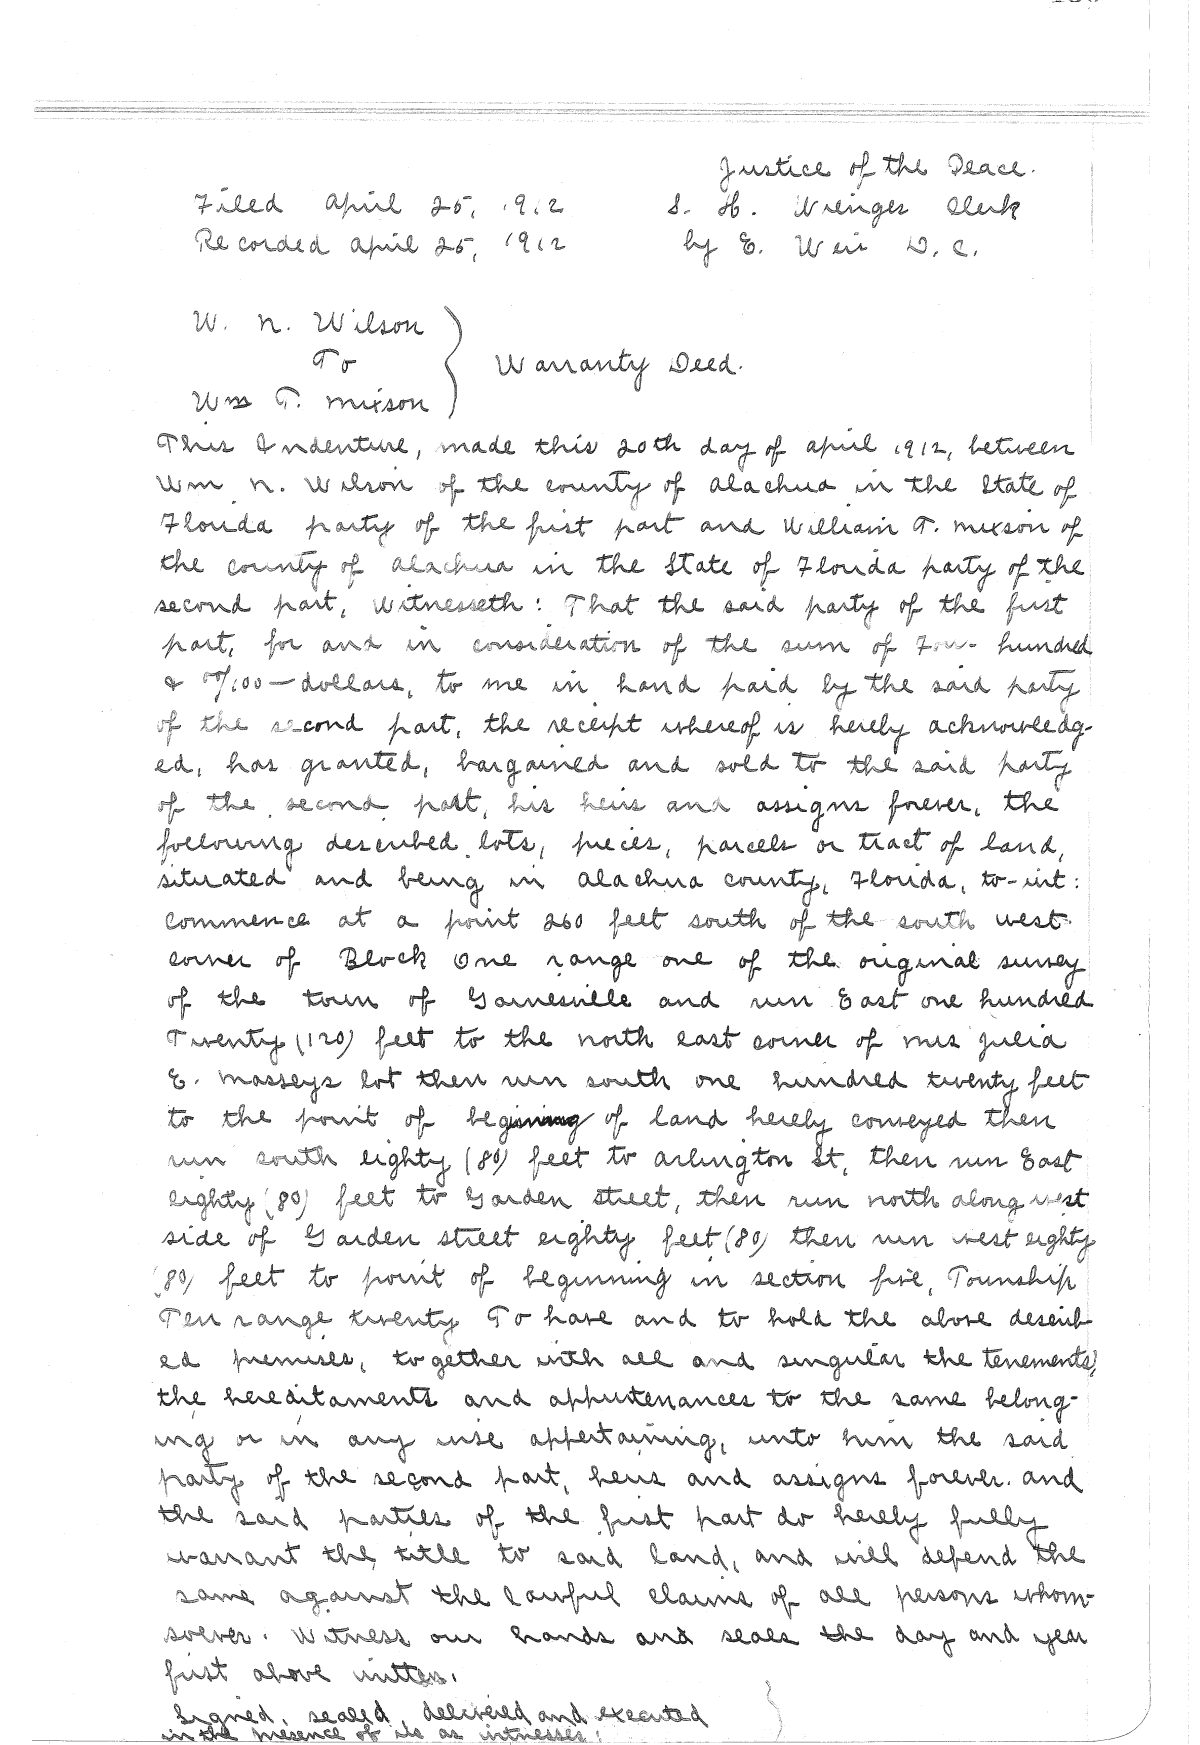 Justice of the Peace.
Filed April 25, 1912 S. H. Wienges Clerk
Recorded April 25, 1912 by E. Weir D. C.
W. N. Wilson
To
Warranty Deed.
Wm T. Mixson
This Indenture, made this 20th day of April 1912, between
Wm N. Wilson of the county of Alachua in the State of
Florida party of the first part and William T. Mixson of
the county of Alachua in the State of Florida party of the
second part, Witnesseth: That the said party of the first
part, for and in consideration of the sum of Four hundred
& 00/100 — dollars, to me in hand paid by the said party
of the second part, the receipt whereof is hereby acknowledg-
ed, has granted, bargained and sold to the said party
of the second part, his heirs and assigns forever, the
following described lots, pieces, parcels or tract of land,
situated and being in Alachua county, Florida, to-wit:
Commence at a point 260 feet south of the south west
corner of Block One range one of the original survey
of the town of Gainesville and run East one hundred
Twenty (120) feet to the north east corner of Mrs Julia
E. Masseys lot then run south one hundred twenty feet
to the point of begining of land hereby conveyed then
run south eighty (80) feet to Arlington St, then run East
eighty (80) feet to Garden street, then run north along west
side of Garden street eighty feet (80) then run west eighty
(80) feet to point of beginning in section five, Township
Ten range twenty To have and to hold the above describ-
ed premises, together with all and singular the tenements,
the hereditaments and appurtenances to the same belong-
ing or in any wise appertaining, unto him the said
party of the second part, heirs and assigns forever. And
the said parties of the first part do hereby fully
warrant the title to said land, and will defend the
same against the lawful claims of all persons whom-
soever. Witness our hands and seals the day and year
first above written.
Signed, sealed, delivered and executed
in the presence of us as witnesses: